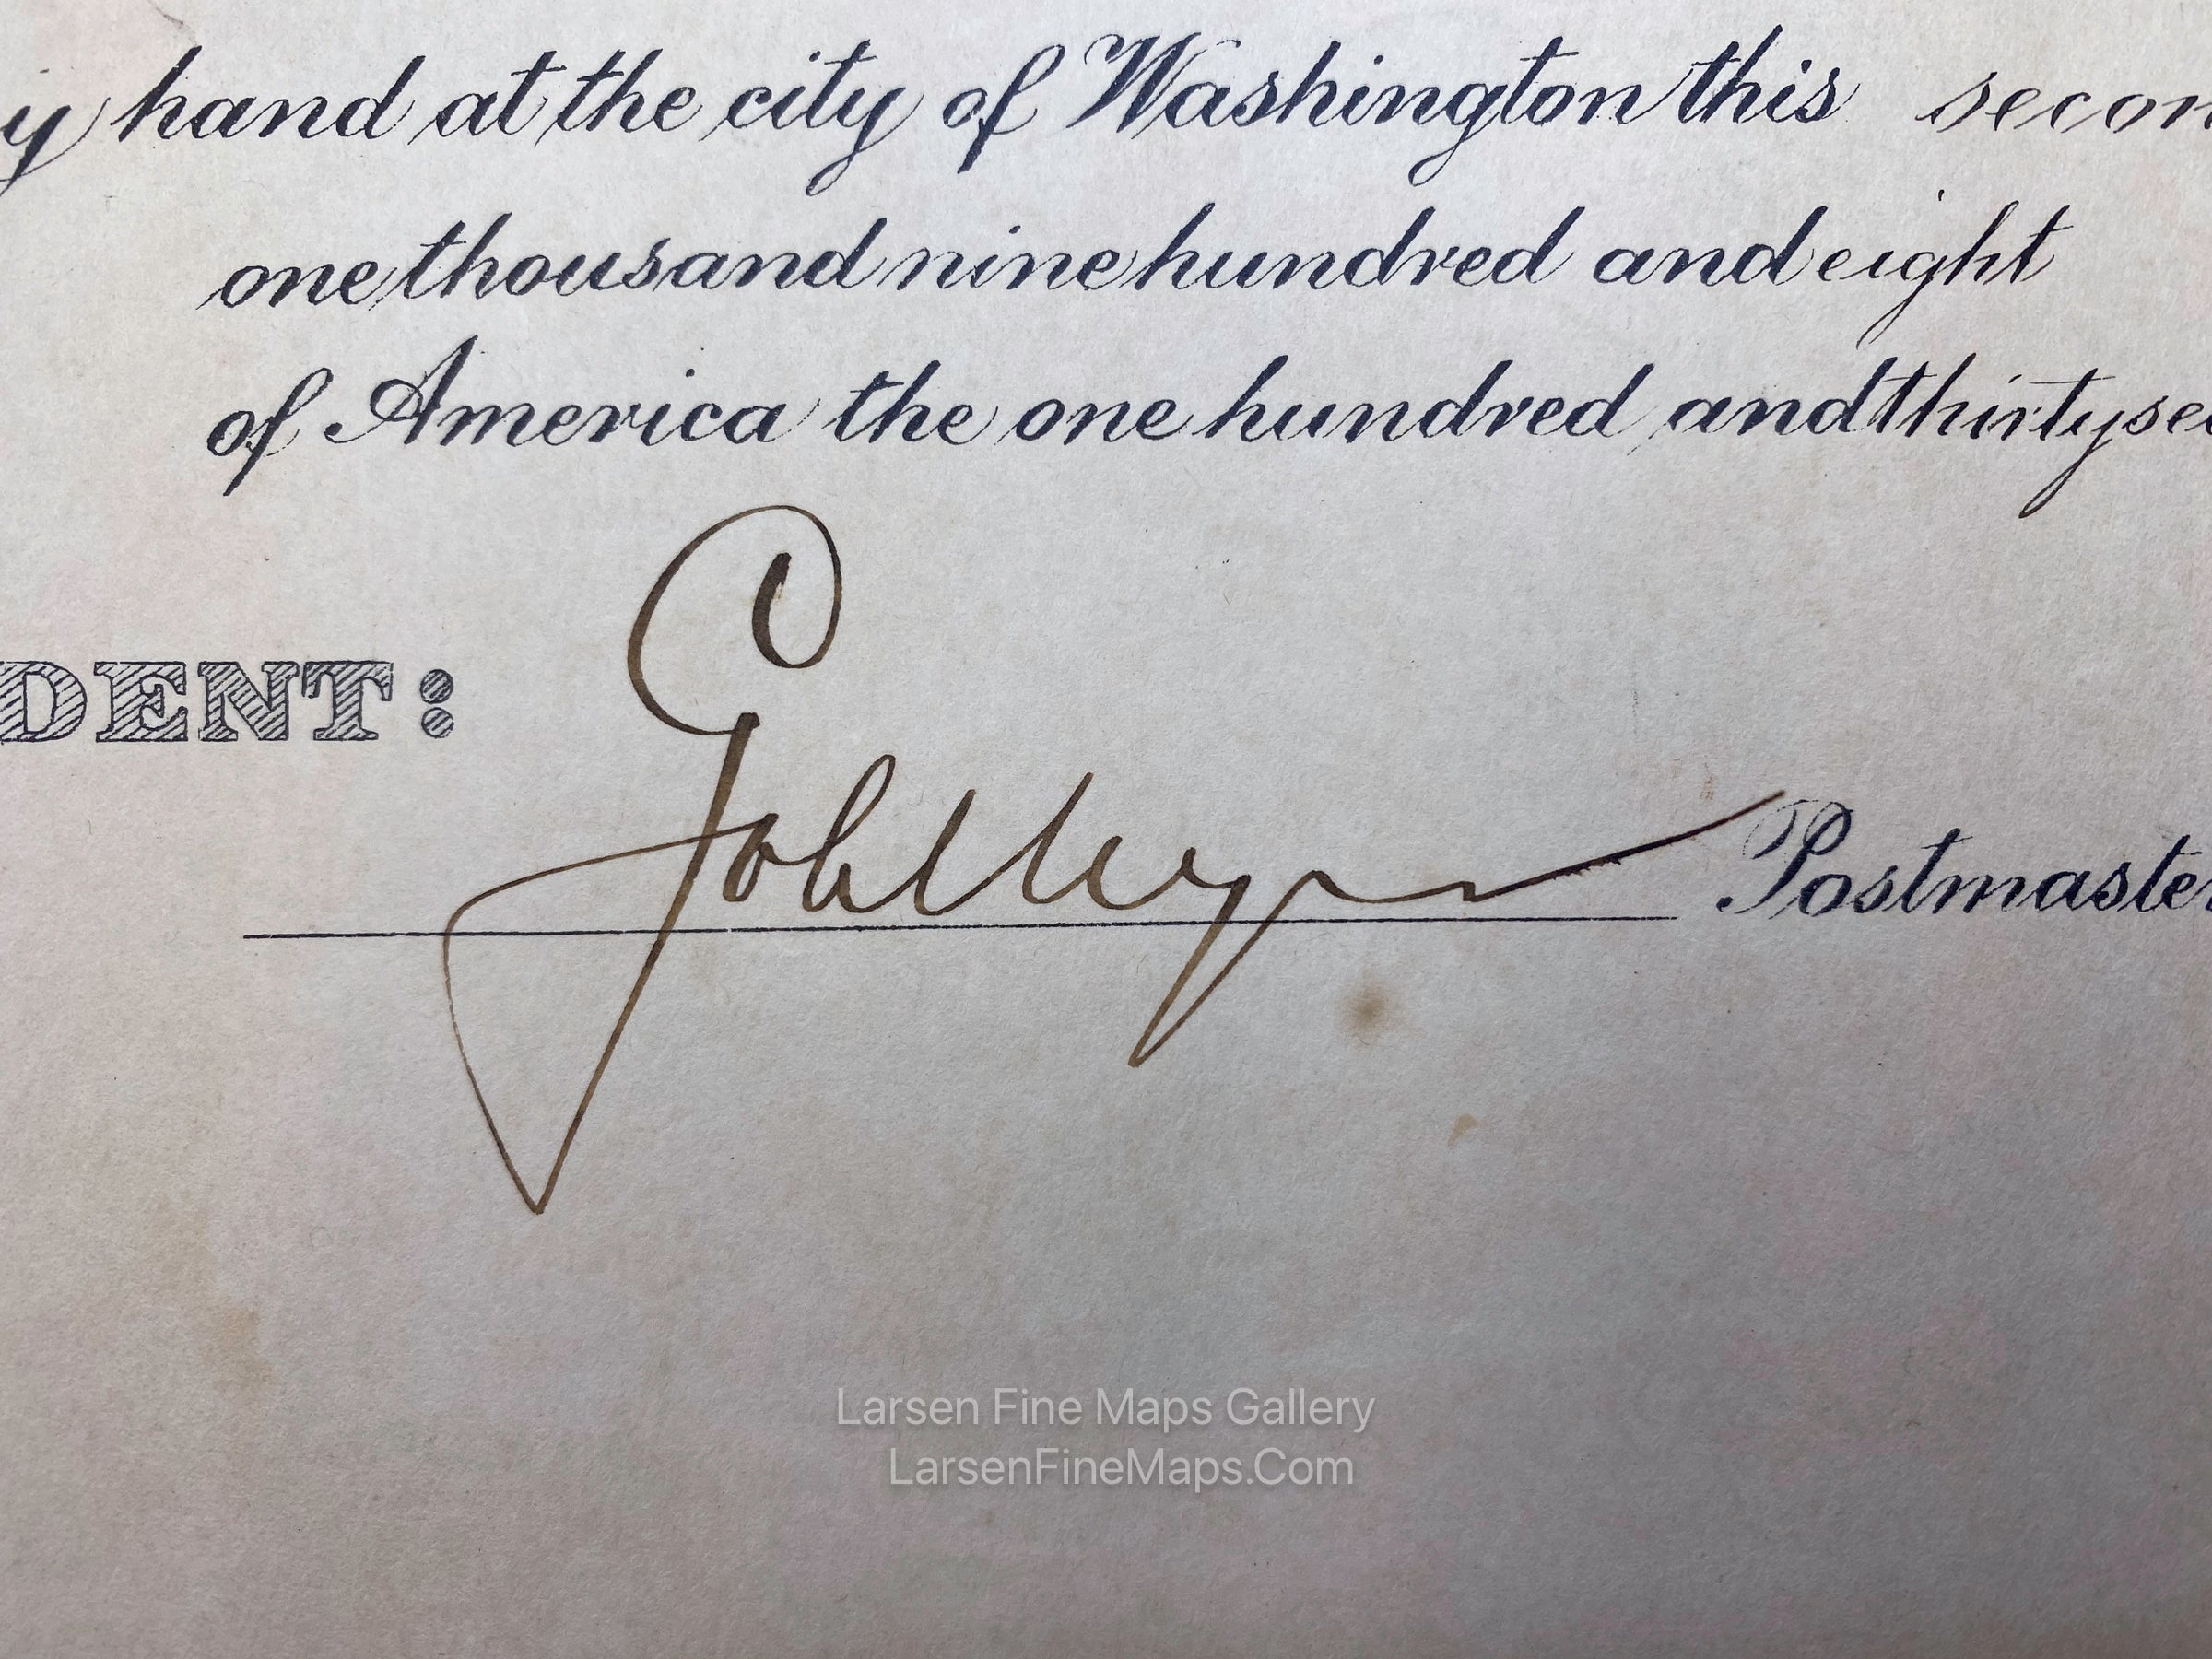 y hand at the city of Washington this secon
one thousand nine hundred and eight
of America the one hundred and thirty sec
DENT:
GvLMeyer
Postmaster
Larsen Fine Maps Gallery
LarsenFineMaps.Com